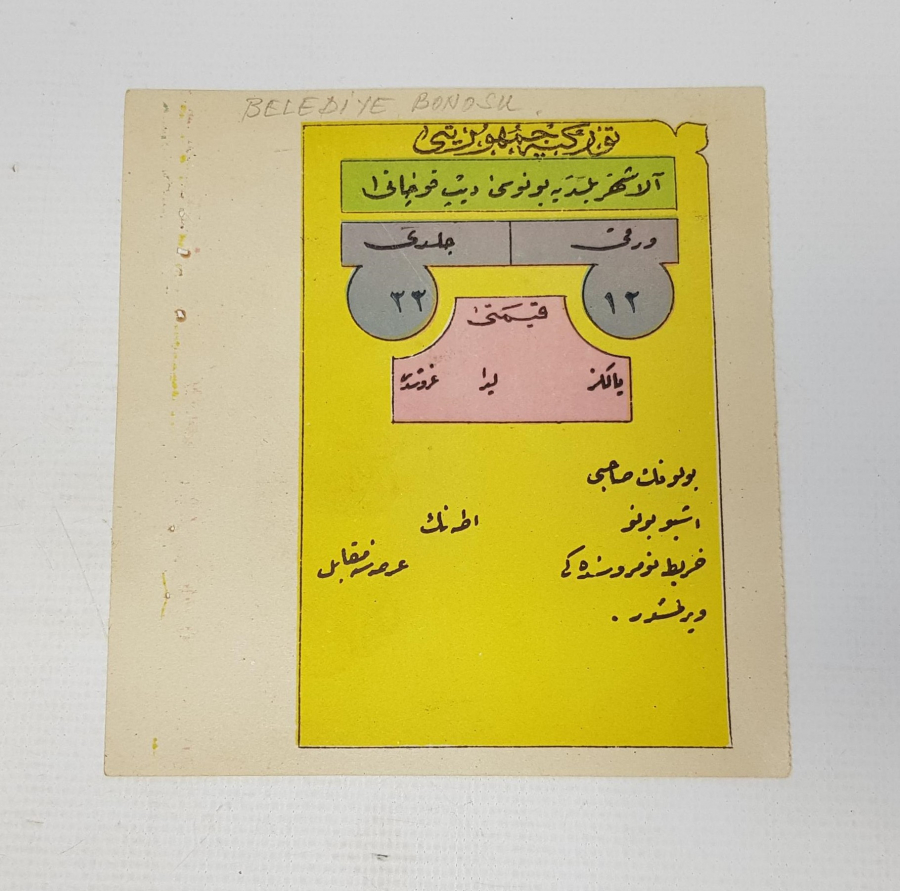 BELEDİYE BONOSU
توركيه جمهوريتى
آلاشهر بلديه بونوسى ديب قوچانى
ورقى جلدى
١٢ ٢٣
قيمتى
يالكز ليرا غروشدر
بونونك صاحبى
اشبو بونو اطه نك
خريطه نومروسنده كى عرصه سنه مقابل
ويرلمشدر .